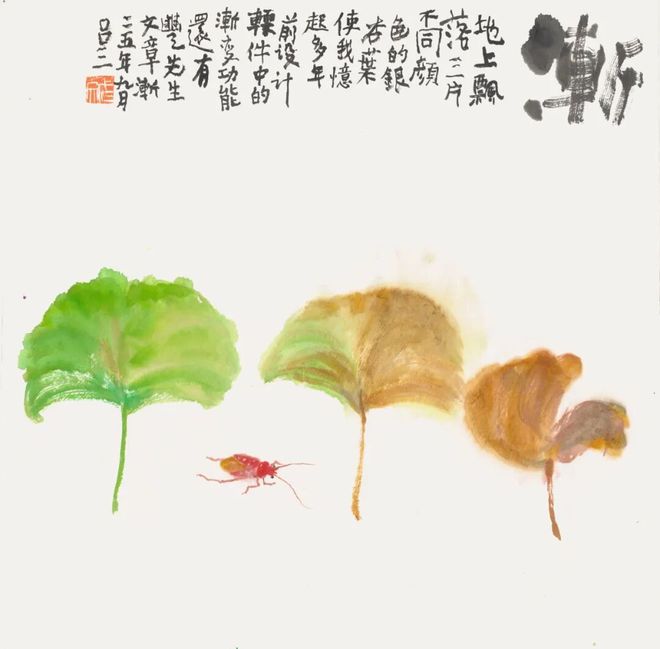 漸
地上飄
落三片
不同顏
色的銀
杏葉
使我憶
起多年
前设计
件中的
漸变功能
還有
豐先生
文章漸
二五年九月
吕三